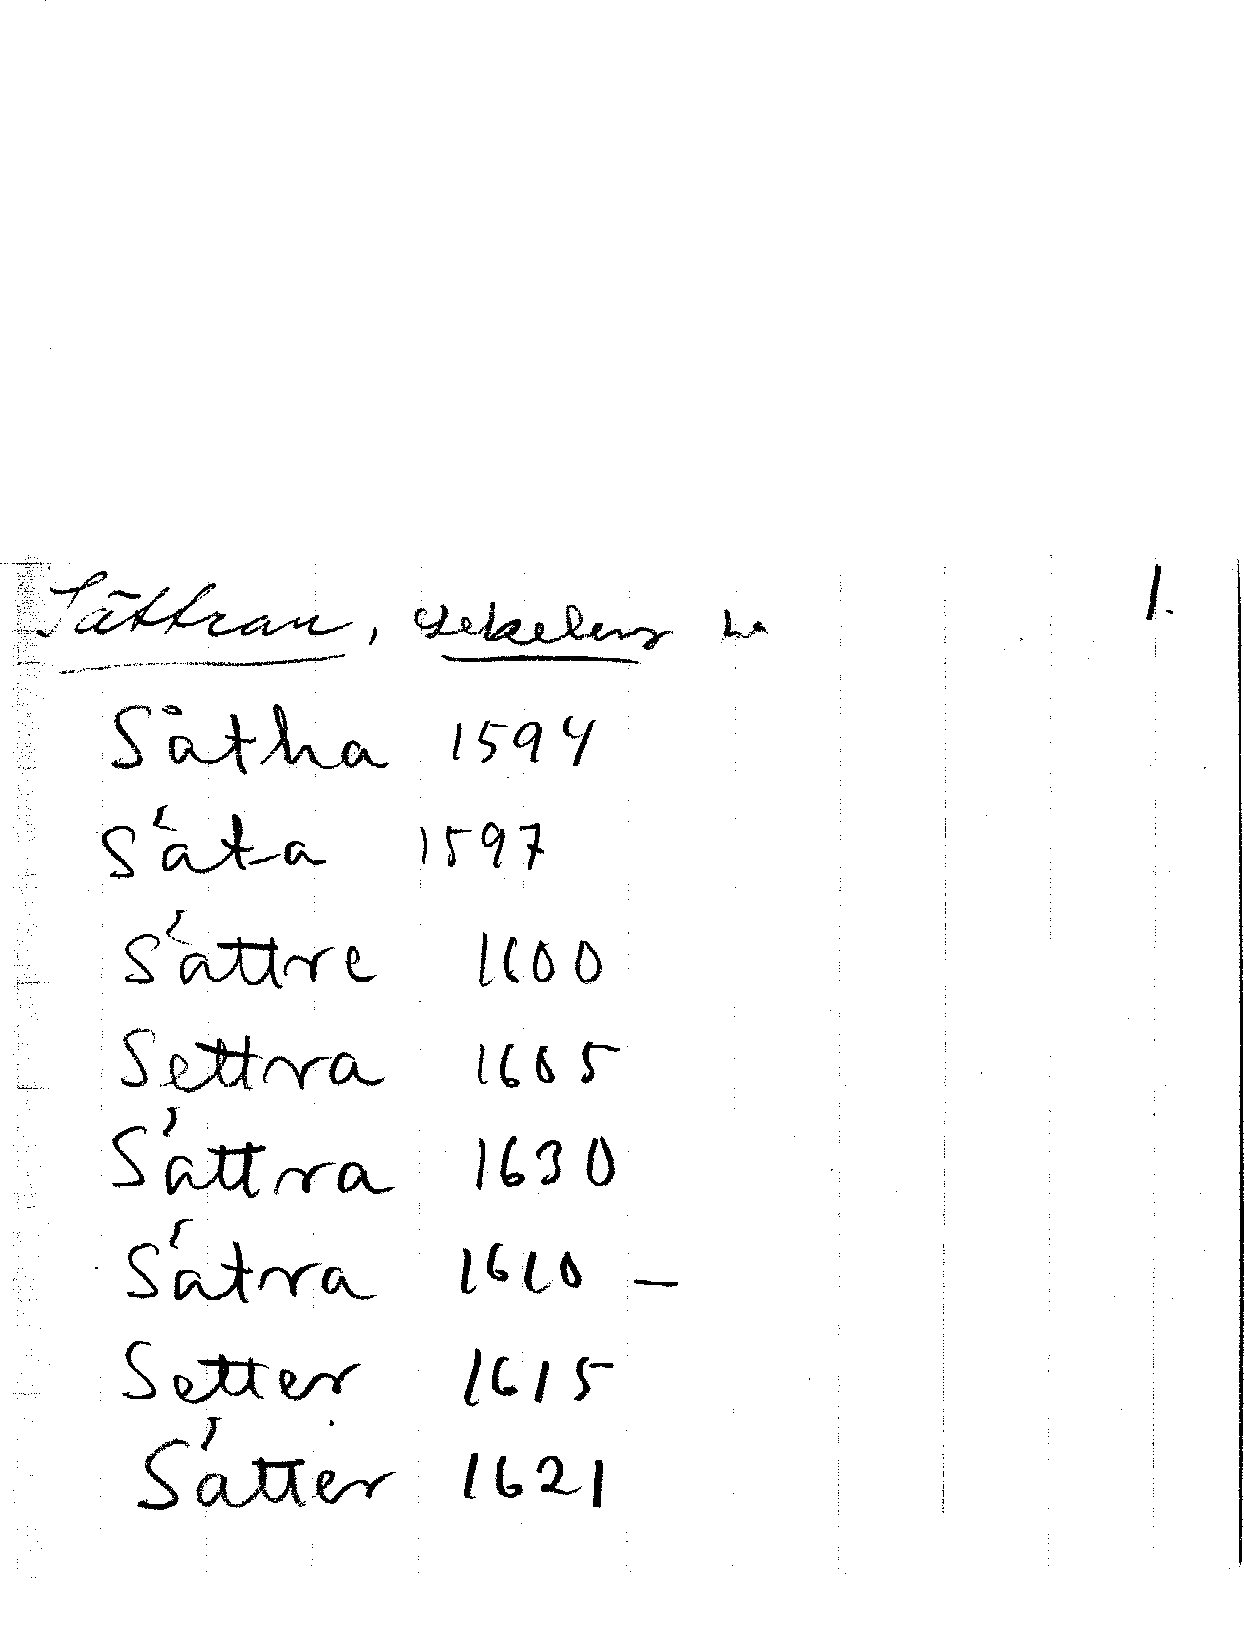 Sättran, 1.
Såtha 1594
Såta 1597
Såttre 1600
Settra 1605
Såttra 1630
Såtra 1610 —
Setter 1615
Såtter 1621